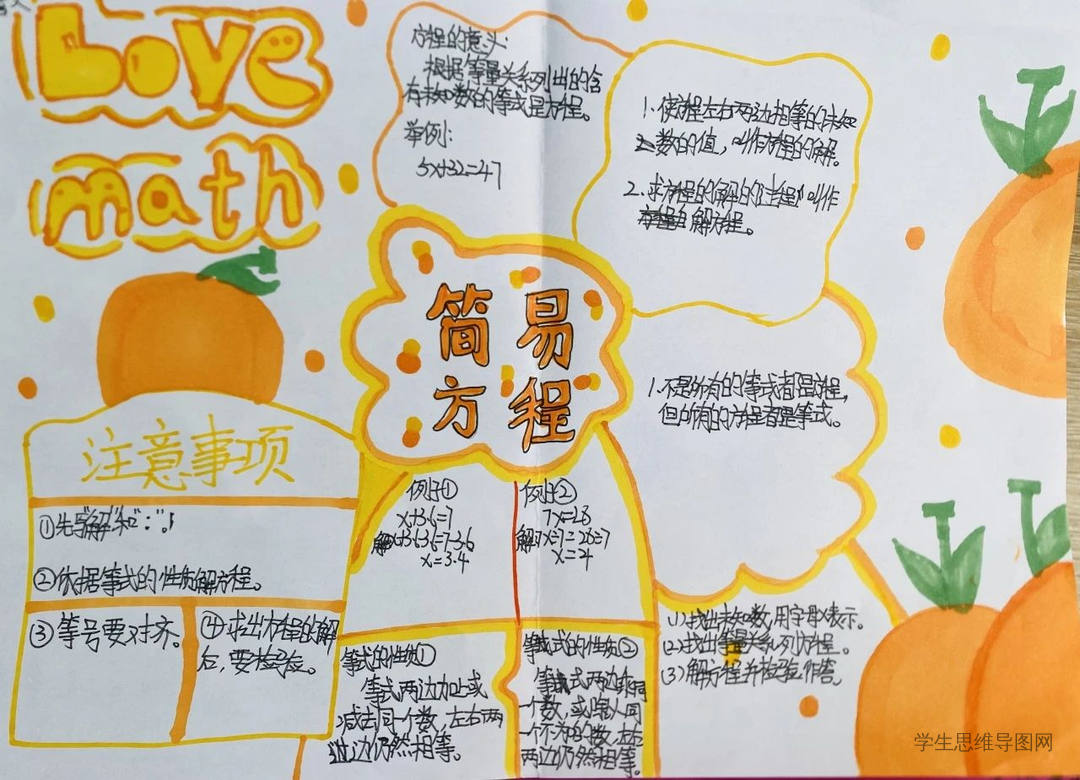 Love
math
方程的意义:
根据等量关系列出的含
有未知数的等式是方程。
举例:
5x+32=47
1.使方程左右两边相等的未知
数的值,叫作方程的解。
2.求方程的解的过程叫作
解方程。
简易
方程
1.不是所有的等式都是方程,
但所有的方程都是等式。
注意事项
①先写"解"和":"。
②依据等式的性质解方程。
③等号要对齐。
④求出方程的解
后,要检验。
例子①
x+3.6=7
解x+3.6-3.6=7-3.6
x=3.4
例子②
7x=28
解7x÷7=28÷7
x=4
等式的性质①
等式两边加上或
减去同一个数,左右两
边仍然相等。
等式的性质②
等式两边乘同
一个数,或除以同
一个不为0的数,左右
两边仍然相等。
(1)找出未知数,用字母x表示。
(2)找出等量关系,列方程。
(3)解方程并检验作答。
学生思维导图网